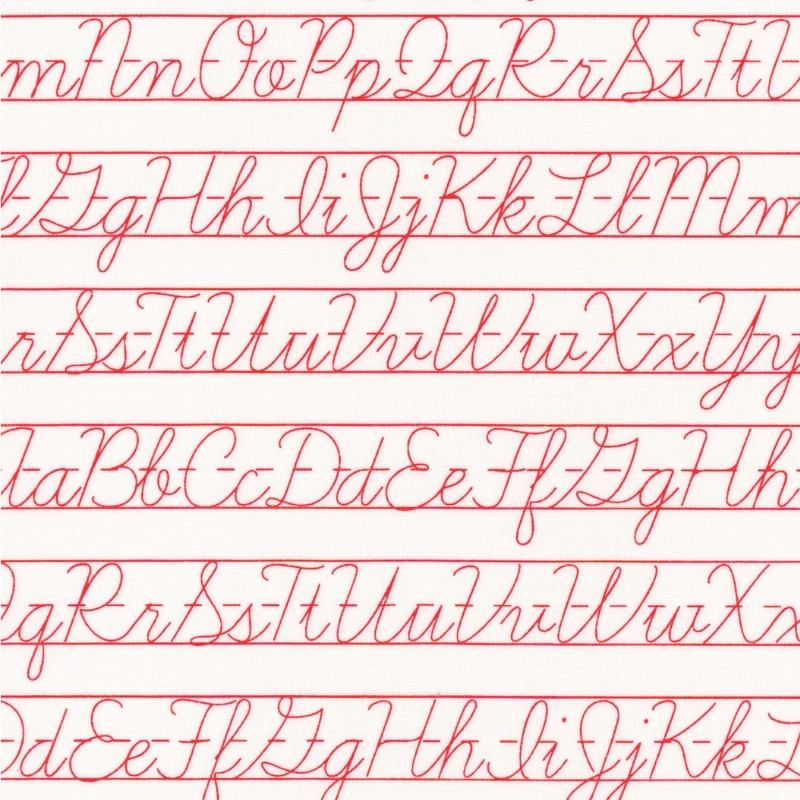 mNnOoPpQqRrSsTtU
lGgHhIiJjKkLlMm
rSsTtUuVvWwXxYy
AaBbCcDdEeFfGgHh
QqRrSsTtUuVvWwXx
DdEeFfGgHhIiJjKkL